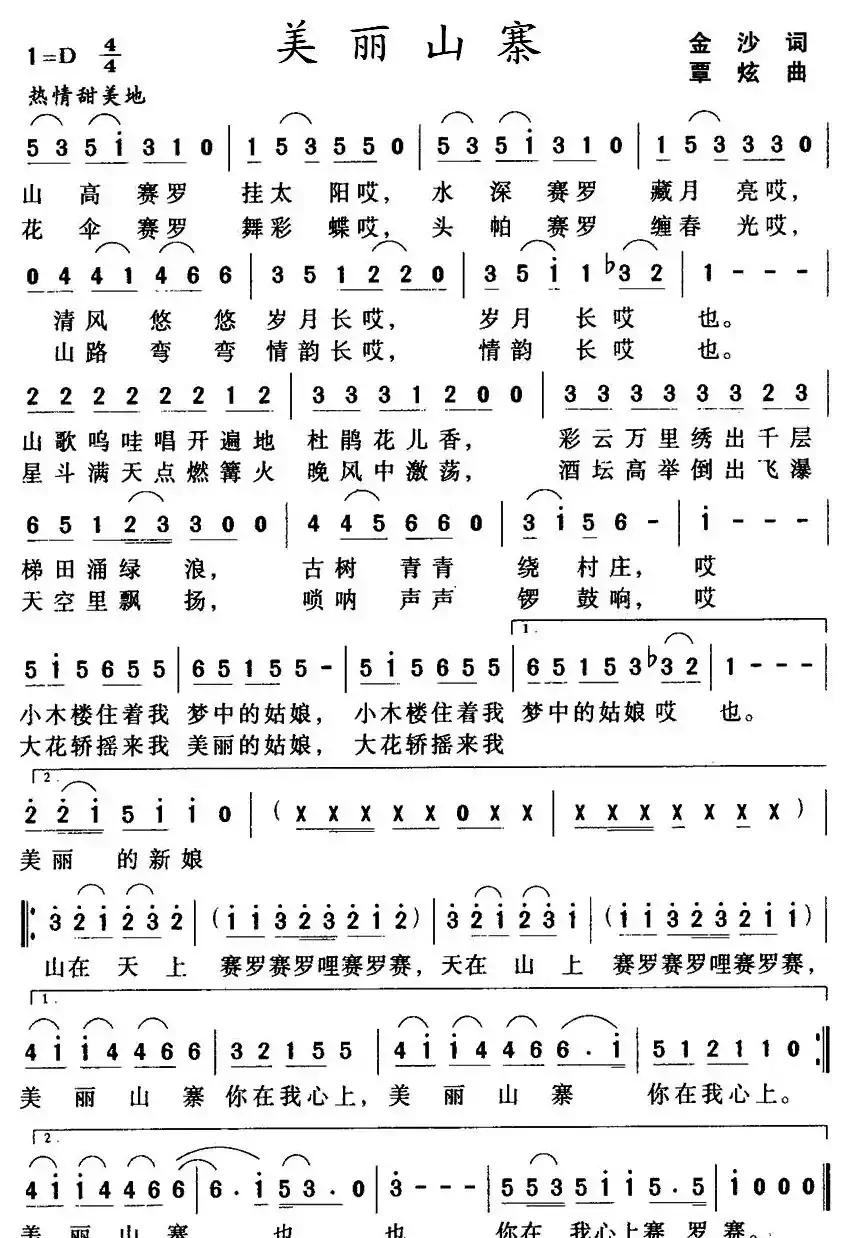 美丽山寨
1=D 4/4
金沙词
覃炫曲
热情甜美地
5 3 5 i 3 1 0 | 1 5 3 5 5 0 | 5 3 5 i 3 1 0 | 1 5 3 3 3 0 |
山高赛罗 挂太阳哎， 水深赛罗 藏月亮哎，
花伞赛罗 舞彩蝶哎， 头帕赛罗 缠春光哎，
0 4 4 1 4 6 6 | 3 5 1 2 2 0 | 3 5 i 1 ♭3 2 | 1 - - - |
清风悠悠 岁月长哎， 岁月长哎 也。
山路弯弯 情韵长哎， 情韵长哎 也。
2 2 2 2 2 2 1 2 | 3 3 3 1 2 0 0 | 3 3 3 3 3 3 2 3
山歌呜哇唱开遍地 杜鹃花儿香， 彩云万里绣出千层
星斗满天点燃篝火 晚风中激荡， 酒坛高举倒出飞瀑
6 5 1 2 3 3 0 0 | 4 4 5 6 6 0 | 3 i 5 6 - | i - - - |
梯田涌绿浪， 古树青青 绕村庄， 哎
天空里飘扬， 唢呐声声 锣鼓响， 哎
1.
5 i 5 6 5 5 | 6 5 1 5 5 - | 5 i 5 6 5 5 | 6 5 1 5 3 ♭3 2 | 1 - - - |
小木楼住着我 梦中的姑娘， 小木楼住着我 梦中的姑娘哎 也。
大花轿摇来我 美丽的姑娘， 大花轿摇来我
2.
2 2 i 5 i i 0 | ( X X X X X 0 X X | X X X X X X X X ) |
美丽 的新娘
3 2 i 2 3 2 | ( i i 3 2 3 2 i 2 ) | 3 2 i 2 3 i | ( i i 3 2 3 2 i i ) |
山在天上 赛罗赛罗哩赛罗赛， 天在山上 赛罗赛罗哩赛罗赛，
1.
4 i i 4 4 6 6 | 3 2 1 5 5 | 4 i i 4 4 6 6 . i | 5 1 2 1 1 0 :|
美丽山寨 你在我心上， 美丽山寨 你在我心上。
2.
4 i i 4 4 6 6 | 6 . i 5 3 . 0 | 3 - - - | 5 5 3 5 i i 5 . 5 | i 0 0 0 ‖
美丽山寨 也 也 你在 我心上赛罗赛。